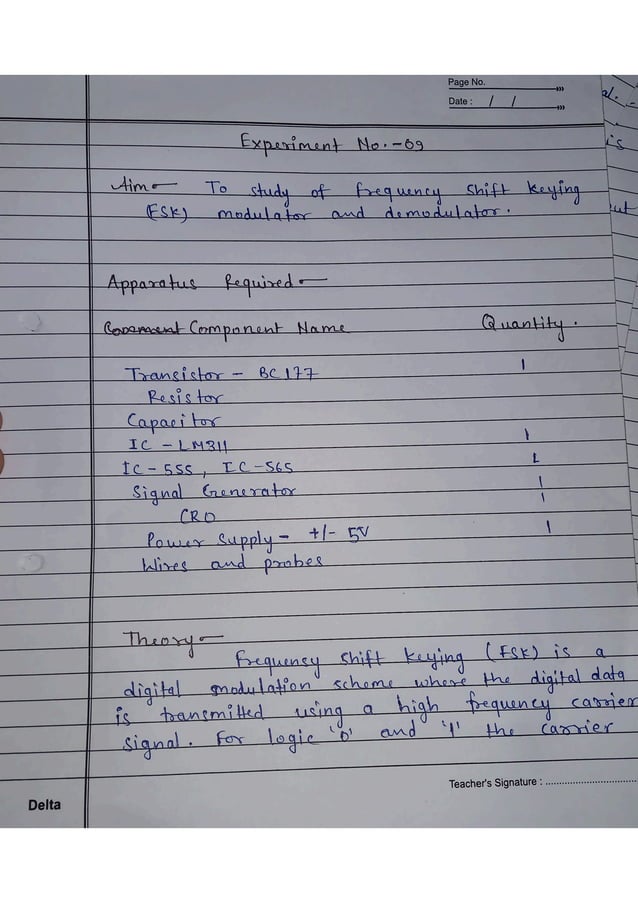 Page No.
Date : / /
Experiment No.-09
Aim - To study of frequency Shift Keying
(FSK) modulator and demodulator.
Apparatus Required -
Component Name Quantity.
Transistor - BC177 1
Resistor
Capacitor
IC - LM311 1
IC - 555, IC - 565 1
Signal Generator 1
CRO 1
Power Supply - +/- 5V 1
Wires and probes
Theory -
Frequency Shift Keying (FSK) is a
digital modulation scheme where the digital data
is transmitted using a high frequency carrier
signal. For logic '0' and '1' the carrier
Teacher's Signature :
Delta